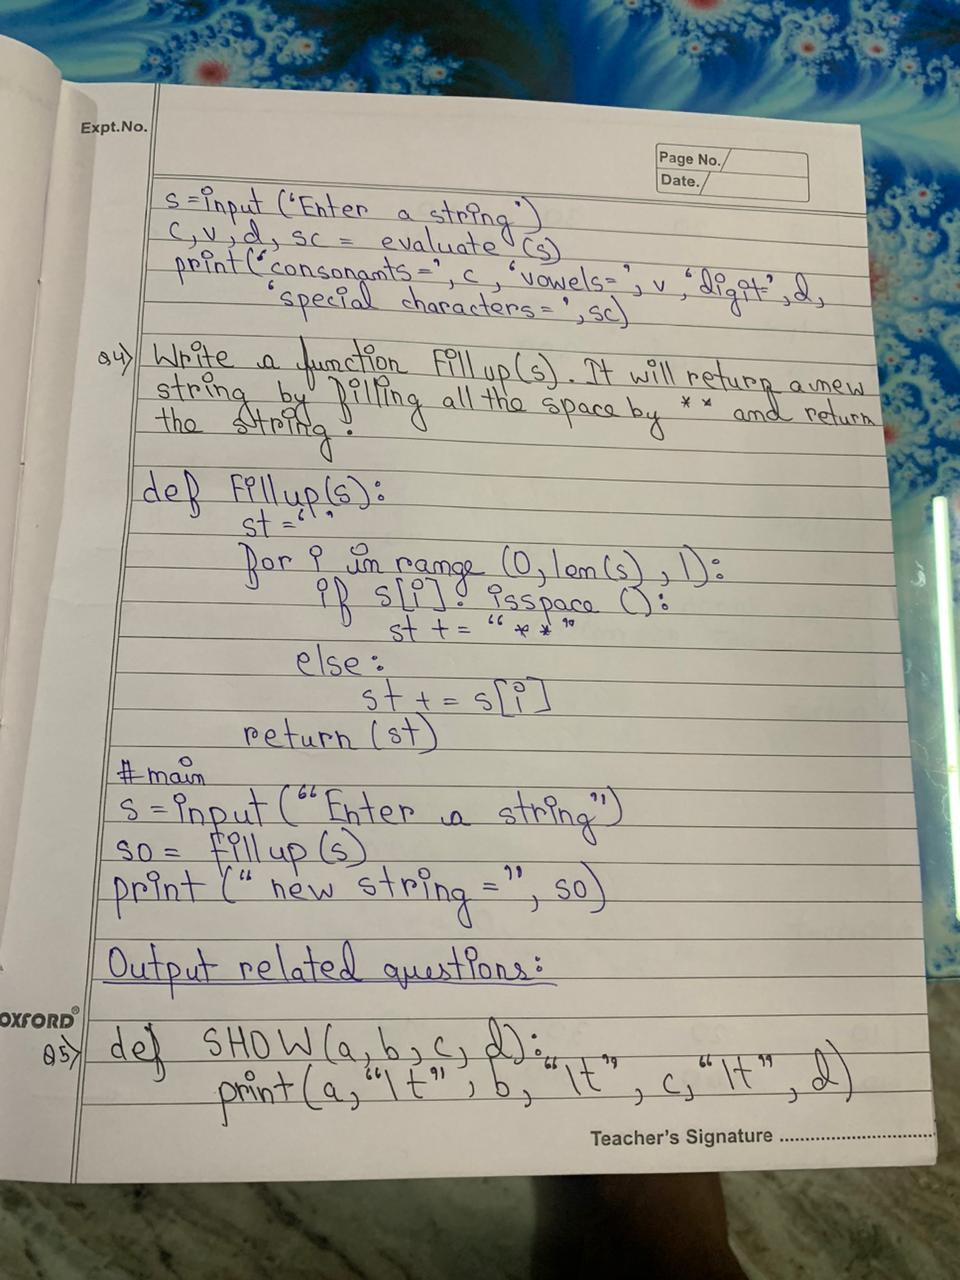 Expt.No.
Page No.
Date.
s=input ('Enter a string')
c,v,d, sc = evaluate (s)
print('consonants=', c, 'vowels=', v, 'digit=', d,
'special characters=', sc)
Q4) Write a function Fillup(s). It will return a new
string by filling all the space by ** and return
the string.
def Fillup(s):
st=' '
for i in range (0, len(s), 1):
if s[i]. isspace ():
st += "**"
else:
st += s[i]
return (st)
#main
s = input ("Enter a string")
so = fillup (s)
print (" new string =", so)
Output related questions:
OXFORD®
Q5) def SHOW(a, b, c, d):
print(a, "\t", b, "\t", c, "\t", d)
Teacher's Signature ..................................